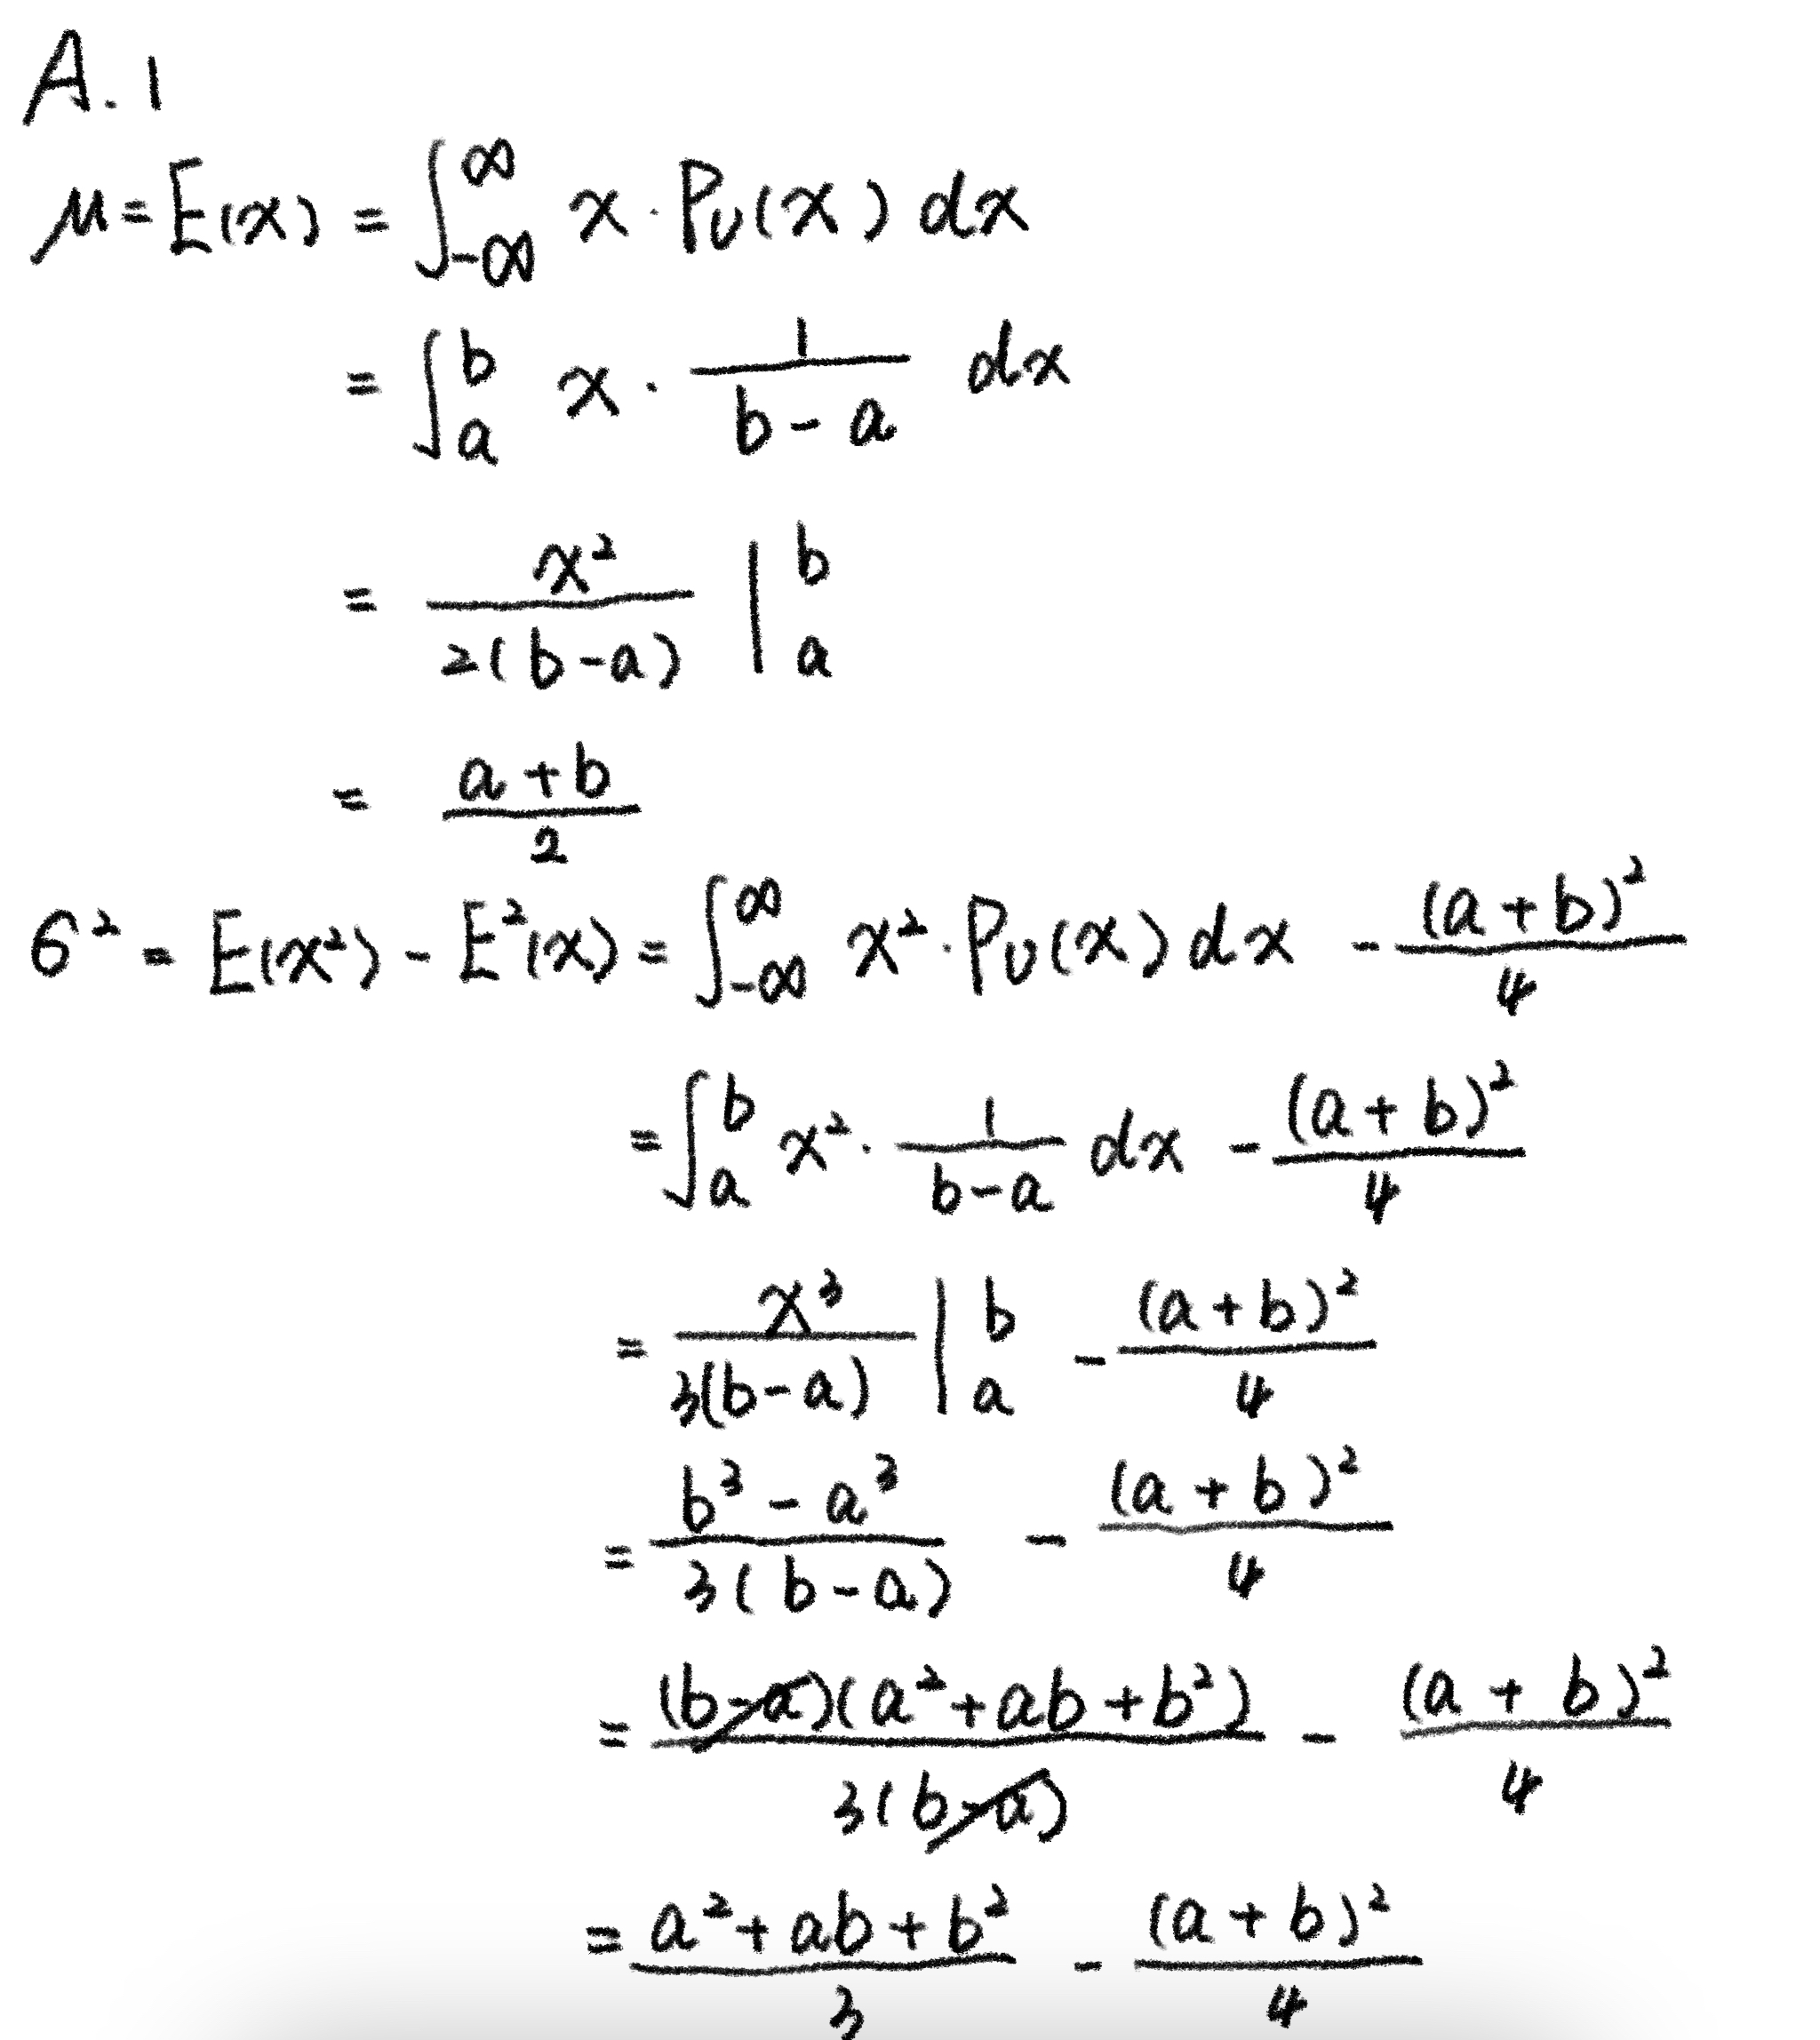 A.1
μ = E(x) = ∫_{-∞}^{∞} x · P_U(x) dx
= ∫_a^b x · \frac{1}{b-a} dx
= \frac{x²}{2(b-a)} |_a^b
= \frac{a+b}{2}
σ² = E(x²) - E²(x) = ∫_{-∞}^{∞} x² · P_U(x) dx - \frac{(a+b)²}{4}
= ∫_a^b x² · \frac{1}{b-a} dx - \frac{(a+b)²}{4}
= \frac{x³}{3(b-a)} |_a^b - \frac{(a+b)²}{4}
= \frac{b³-a³}{3(b-a)} - \frac{(a+b)²}{4}
= \frac{(b-a)(a²+ab+b²)}{3(b-a)} - \frac{(a+b)²}{4}
= \frac{a²+ab+b²}{3} - \frac{(a+b)²}{4}